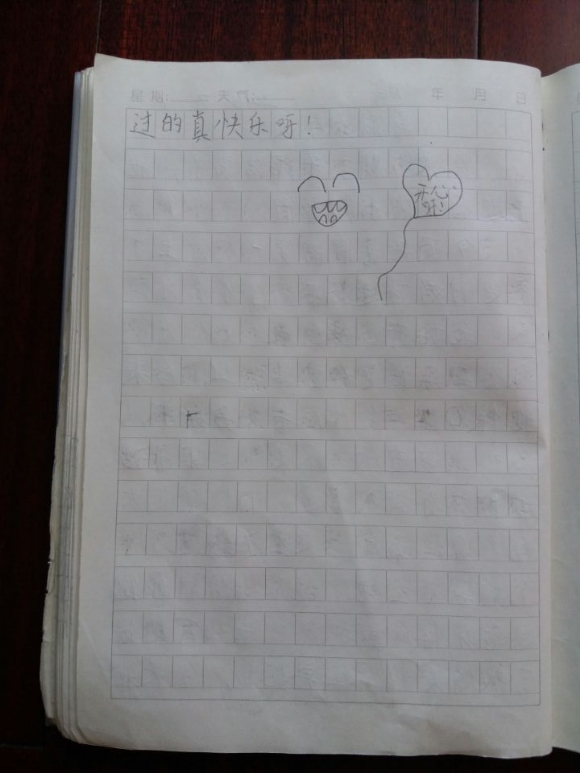 星期: 天气: 年 月 日
过的真快乐呀!
开心
呀!